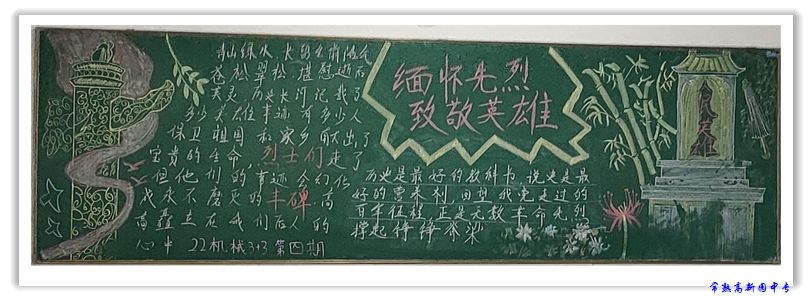 青山绿水,长留生前浩气
苍松翠柏,堪慰逝后
英灵 历史长河记载了
多少英雄事迹,有多少人
保卫祖国和家乡献出了
宝贵的生命,烈士们走了
但他们的事迹令们化
成永不磨灭的丰碑,高
高矗立在我们后人的
心中 22机械3+3第四期
缅怀先烈
致敬英雄
历史是最好的教科书,说史是最
好的营养剂,回望我党走过的
百年征程,正是无数革命先烈
撑起铮铮脊梁
人民英雄
常熟高新园中专